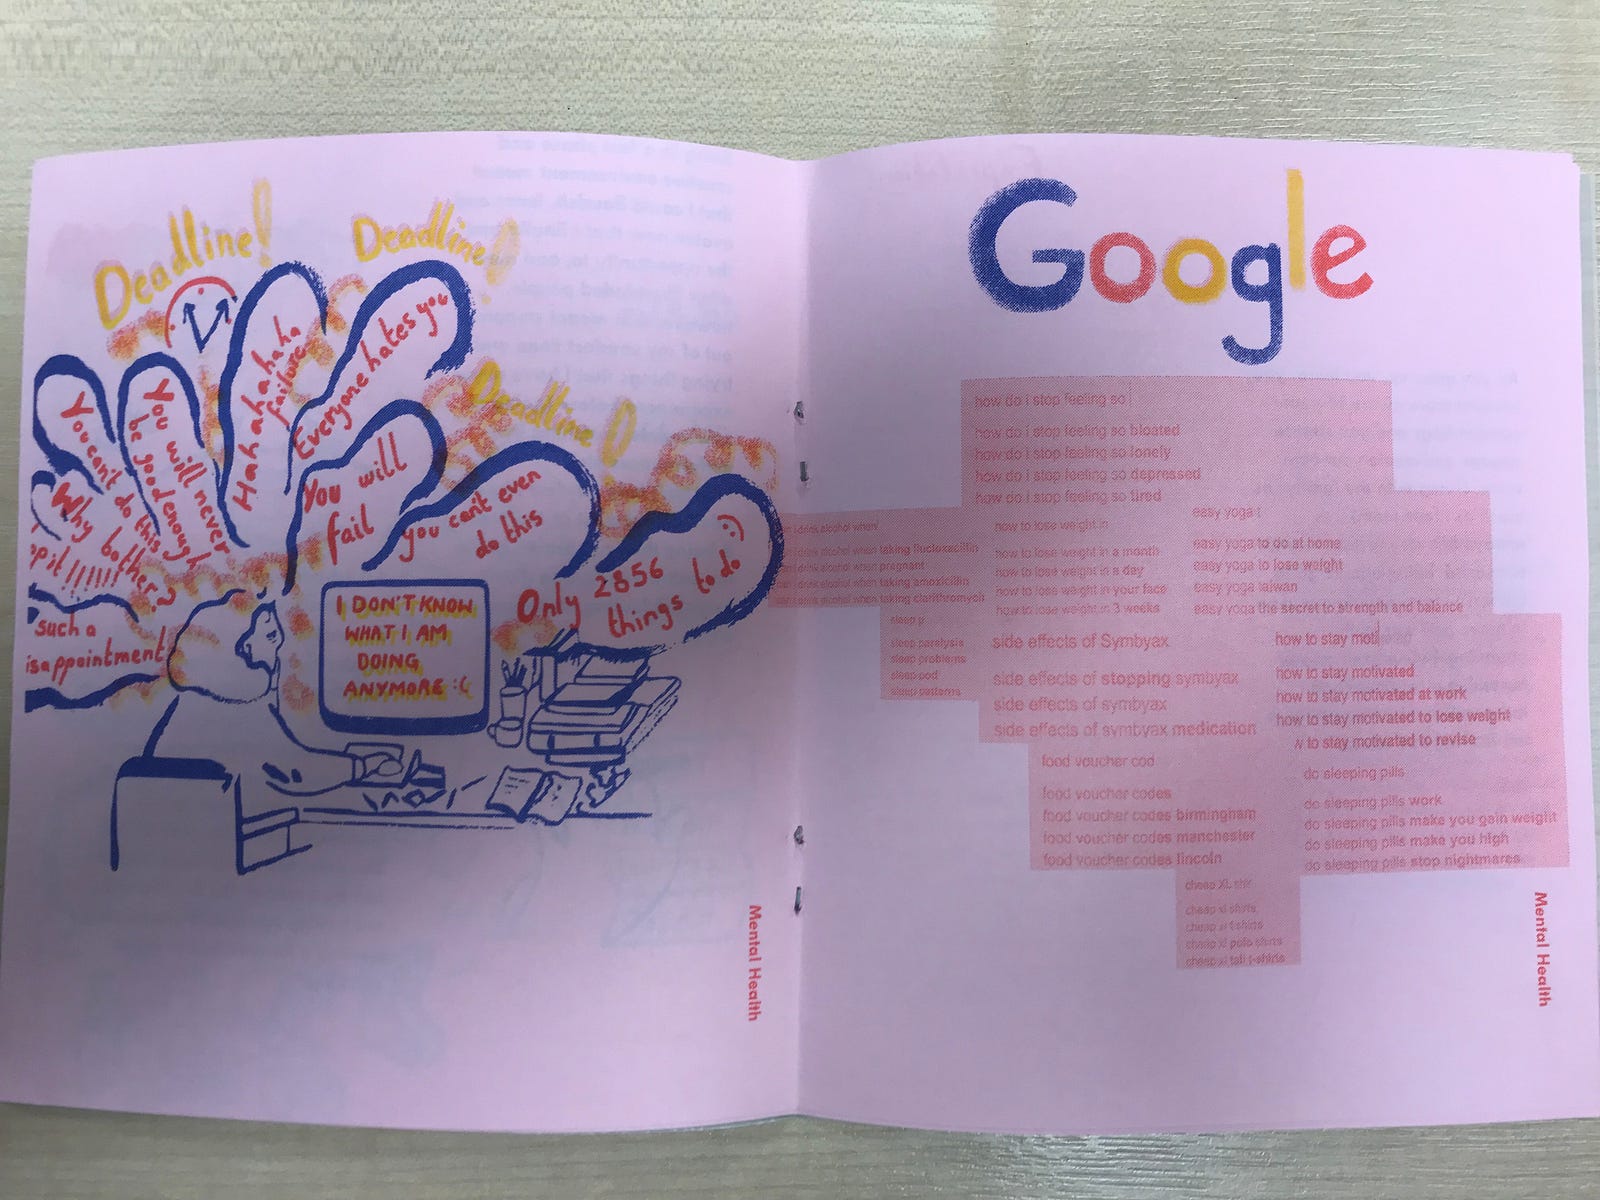 Deadline!
Deadline!
Deadline
Hahahahaha
failure
Everyone hates you
You can't do this
You will never
be good enough
Why bother?
!!!!!!
You will
fail
you can't even
do this
Only 2856
things to do
:)
such a
isappointment
I DON'T KNOW
WHAT I AM
DOING
ANYMORE :(
Mental Health
Google
how do i stop feeling so
how do i stop feeling so bloated
how do i stop feeling so lonely
how do i stop feeling so depressed
how do i stop feeling so tired
i drink alcohol when
i drink alcohol when taking flucloxacillin
i drink alcohol when pregnant
i drink alcohol when taking amoxicillin
i drink alcohol when taking clarithromycin
how to lose weight in
how to lose weight in a month
how to lose weight in a day
how to lose weight in your face
how to lose weight in 3 weeks
easy yoga t
easy yoga to do at home
easy yoga to lose weight
easy yoga taiwan
easy yoga the secret to strength and balance
sleep p
sleep paralysis
sleep problems
sleep pod
sleep patterns
side effects of Symbyax
side effects of stopping symbyax
side effects of symbyax
side effects of symbyax medication
how to stay moti
how to stay motivated
how to stay motivated at work
how to stay motivated to lose weight
w to stay motivated to revise
food voucher cod
food voucher codes
food voucher codes birmingham
food voucher codes manchester
food voucher codes lincoln
do sleeping pills
do sleeping pills work
do sleeping pills make you gain weight
do sleeping pills make you high
do sleeping pills stop nightmares
cheap XL shir
cheap xl shirts
cheap xl t shirts
cheap xl polo shirts
cheap xl tall t-shirts
Mental Health